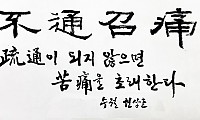 不通召痛
疏通이 되지 않으면
苦痛을 초래한다